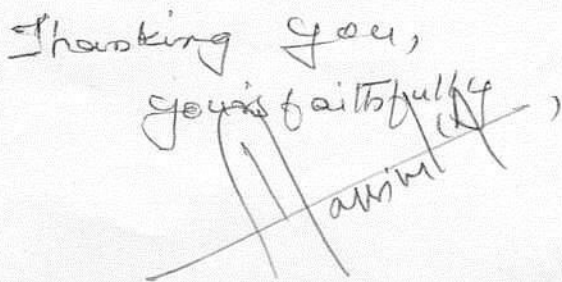 Thanking you,
yours faithfully,